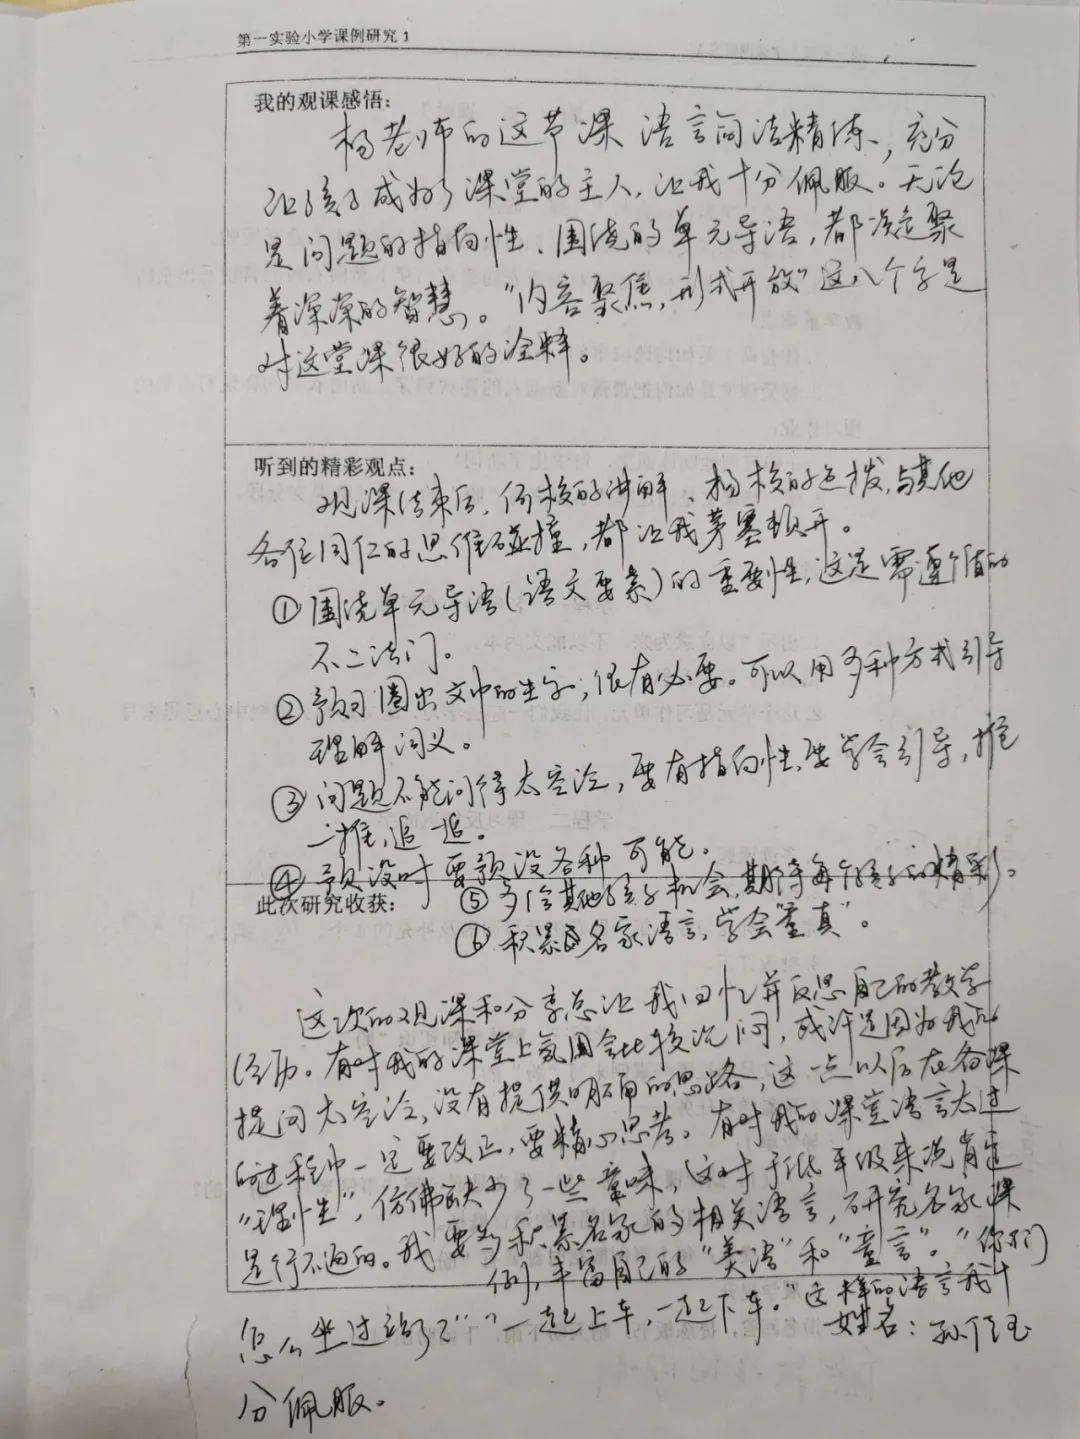 第一实验小学课例研究1
我的观课感悟：
杨老师的这节课 语言简洁精炼，充分
让孩子成为了课堂的主人，让我十分佩服。无论
是问题的指向性、围绕的单元导语，都凝聚
着深深的智慧。“内容聚焦，形式开放”这八个字是
对这堂课很好的诠释。
听到的精彩观点：
观课结束后，何校的讲解、杨校的点拨，与其他
各位同仁的思维碰撞，都让我茅塞顿开。
①围绕单元导语（语文要素）的重要性，这是需遵循的
不二法门。
②预习圈出文中的生字，很有必要。可以用多种方式引导
理解词义。
③问题不能问得太空泛，要有指向性，要学会引导，推
一推，追一追。
④预设时要预设各种可能。
⑤多给其他孩子机会，期待每个孩子的精彩。
此次研究收获：
⑥积累名家语言，学会“童真”。
这次的观课和分享总让我回忆并反思自己的教学
经历。有时我的课堂上氛围会比较沉闷，或许是因为我的
提问太空泛，没有提供明确的思路，这一点以后在备课
的过程中一定要改正，要精心思考。有时我的课堂语言太过
“理性”，仿佛缺少了一些童味，这对于低年级来说肯定
是行不通的。我要多积累名家的相关语言，研究名家课
例，丰富自己的“美语”和“童言”。“你们
怎么坐过站了”“一起上车，一起下车。”这样的语言我十
姓名：孙佳玉
分佩服。